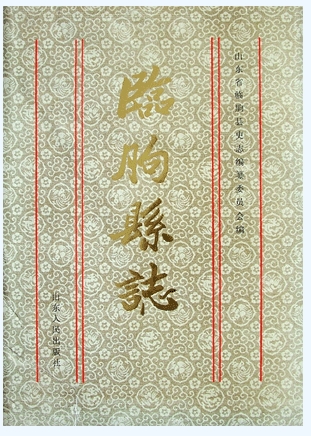 山东省临朐县史志编纂委员会编
臨朐縣誌
山东人民出版社